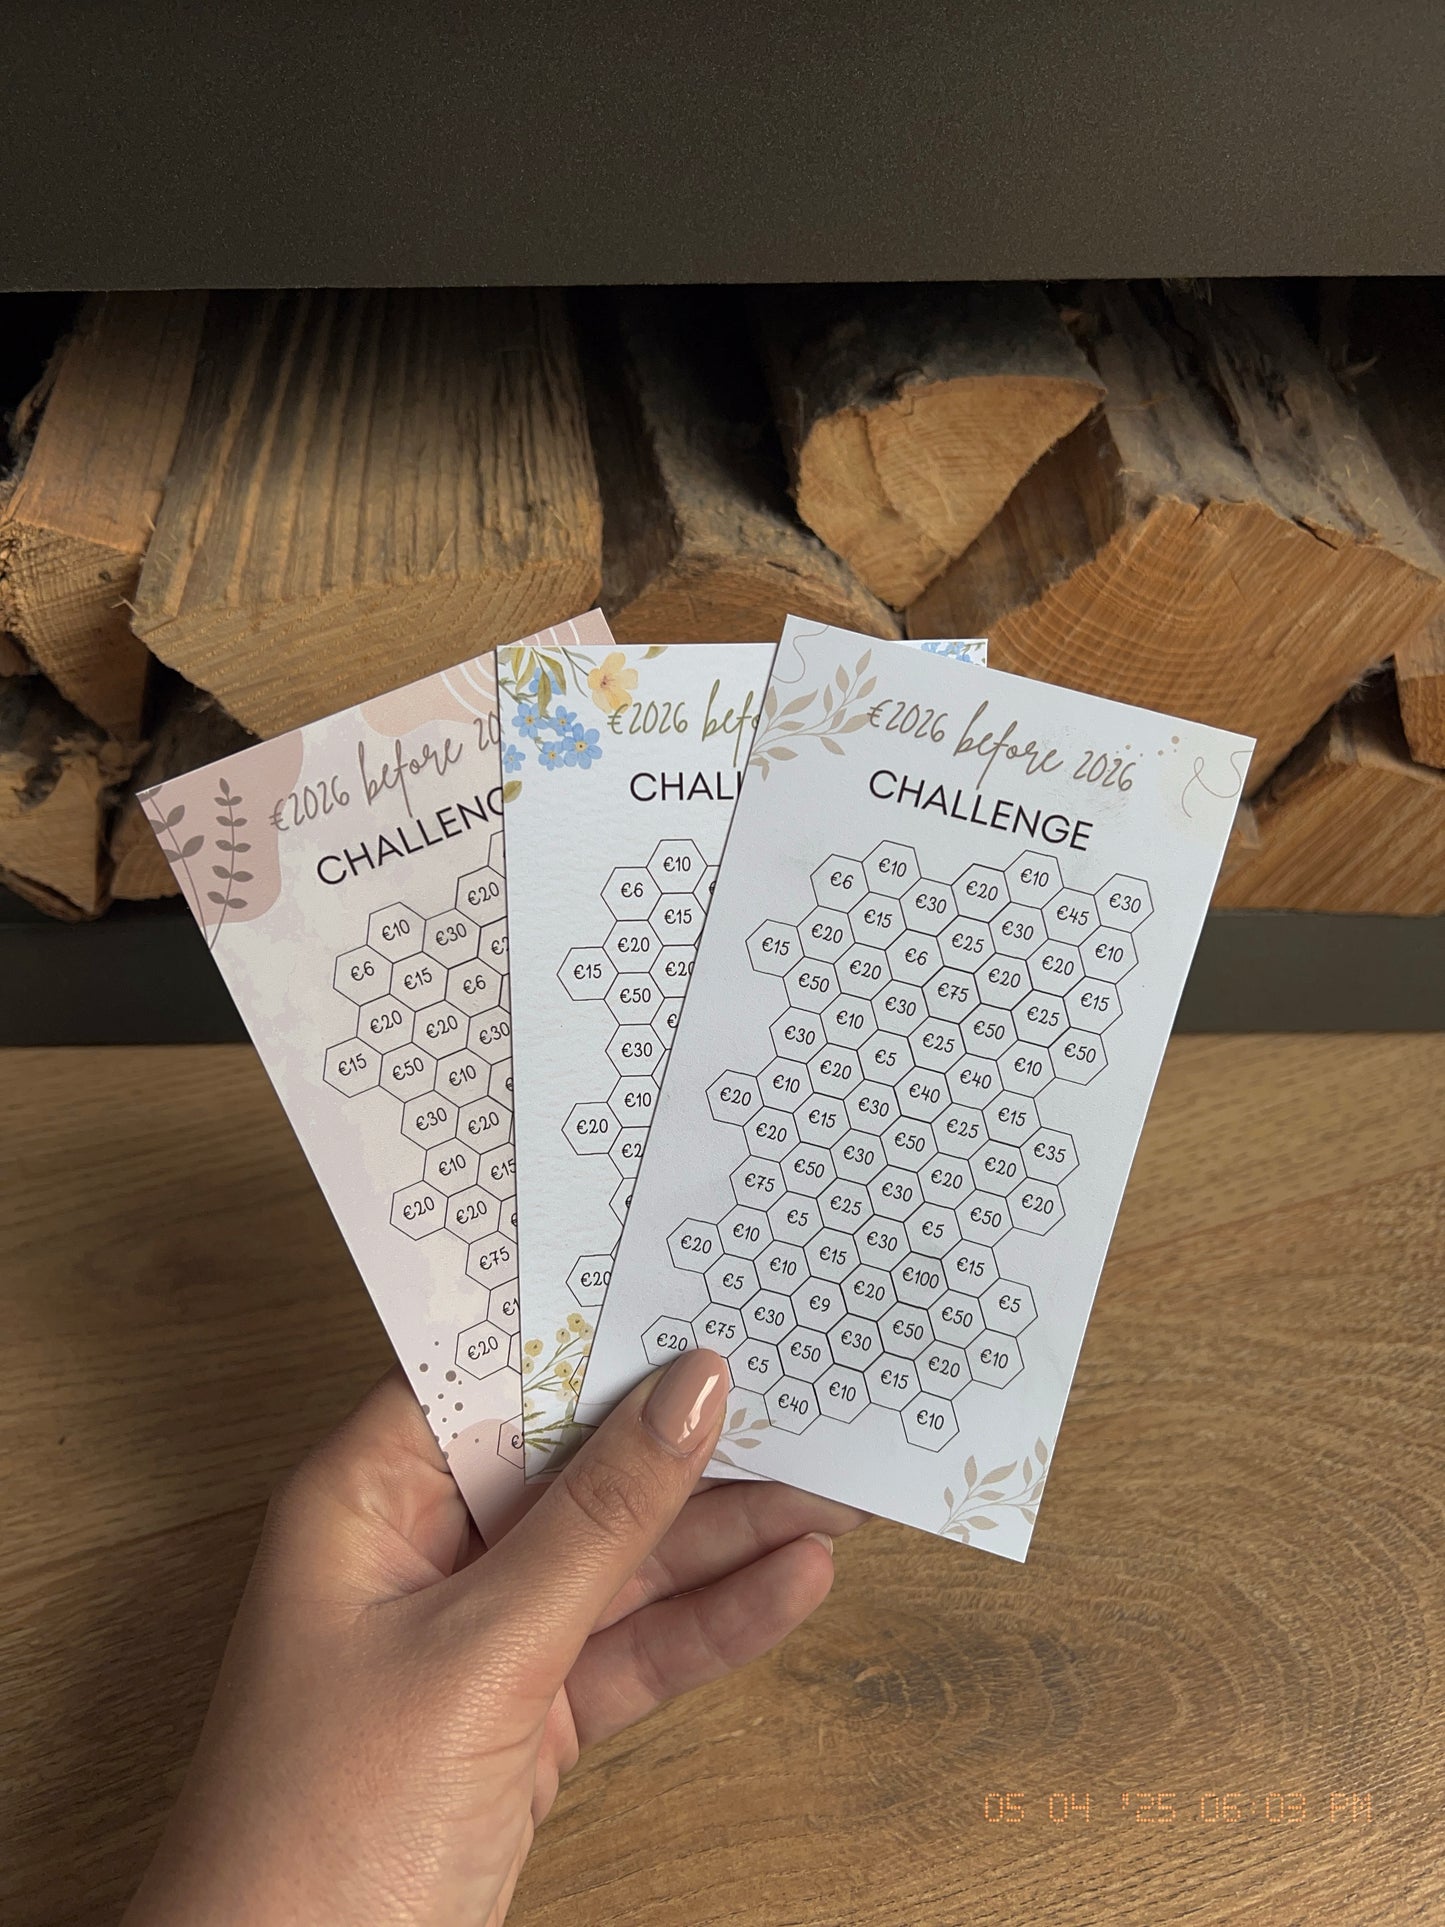 €2026 before 20
CHALLENG
€20
€10 €30
€6 €15 €6
€20 €20 €30
€15 €50 €10
€30 €20
€10 €15
€20 €20
€75
€20
€2026 bef
CHAL
€10
€6
€15
€20
€15 €20
€50
€30
€10
€20
€20
€2026 before 2026
CHALLENGE
€6 €10 €30 €20 €10 €45 €30
€15 €20 €15 €6 €25 €30 €20 €10
€50 €20 €30 €75 €20 €25 €15
€30 €10 €5 €25 €50 €10 €50
€20 €10 €20 €30 €40 €40 €15
€20 €15 €30 €50 €25 €20 €35
€75 €50 €25 €30 €20 €50 €20
€20 €10 €5 €15 €30 €5 €15
€5 €10 €9 €20 €100 €50 €5
€20 €75 €30 €50 €30 €50 €20 €10
€5 €40 €10 €15 €10
05 04 '25 06:03 PM